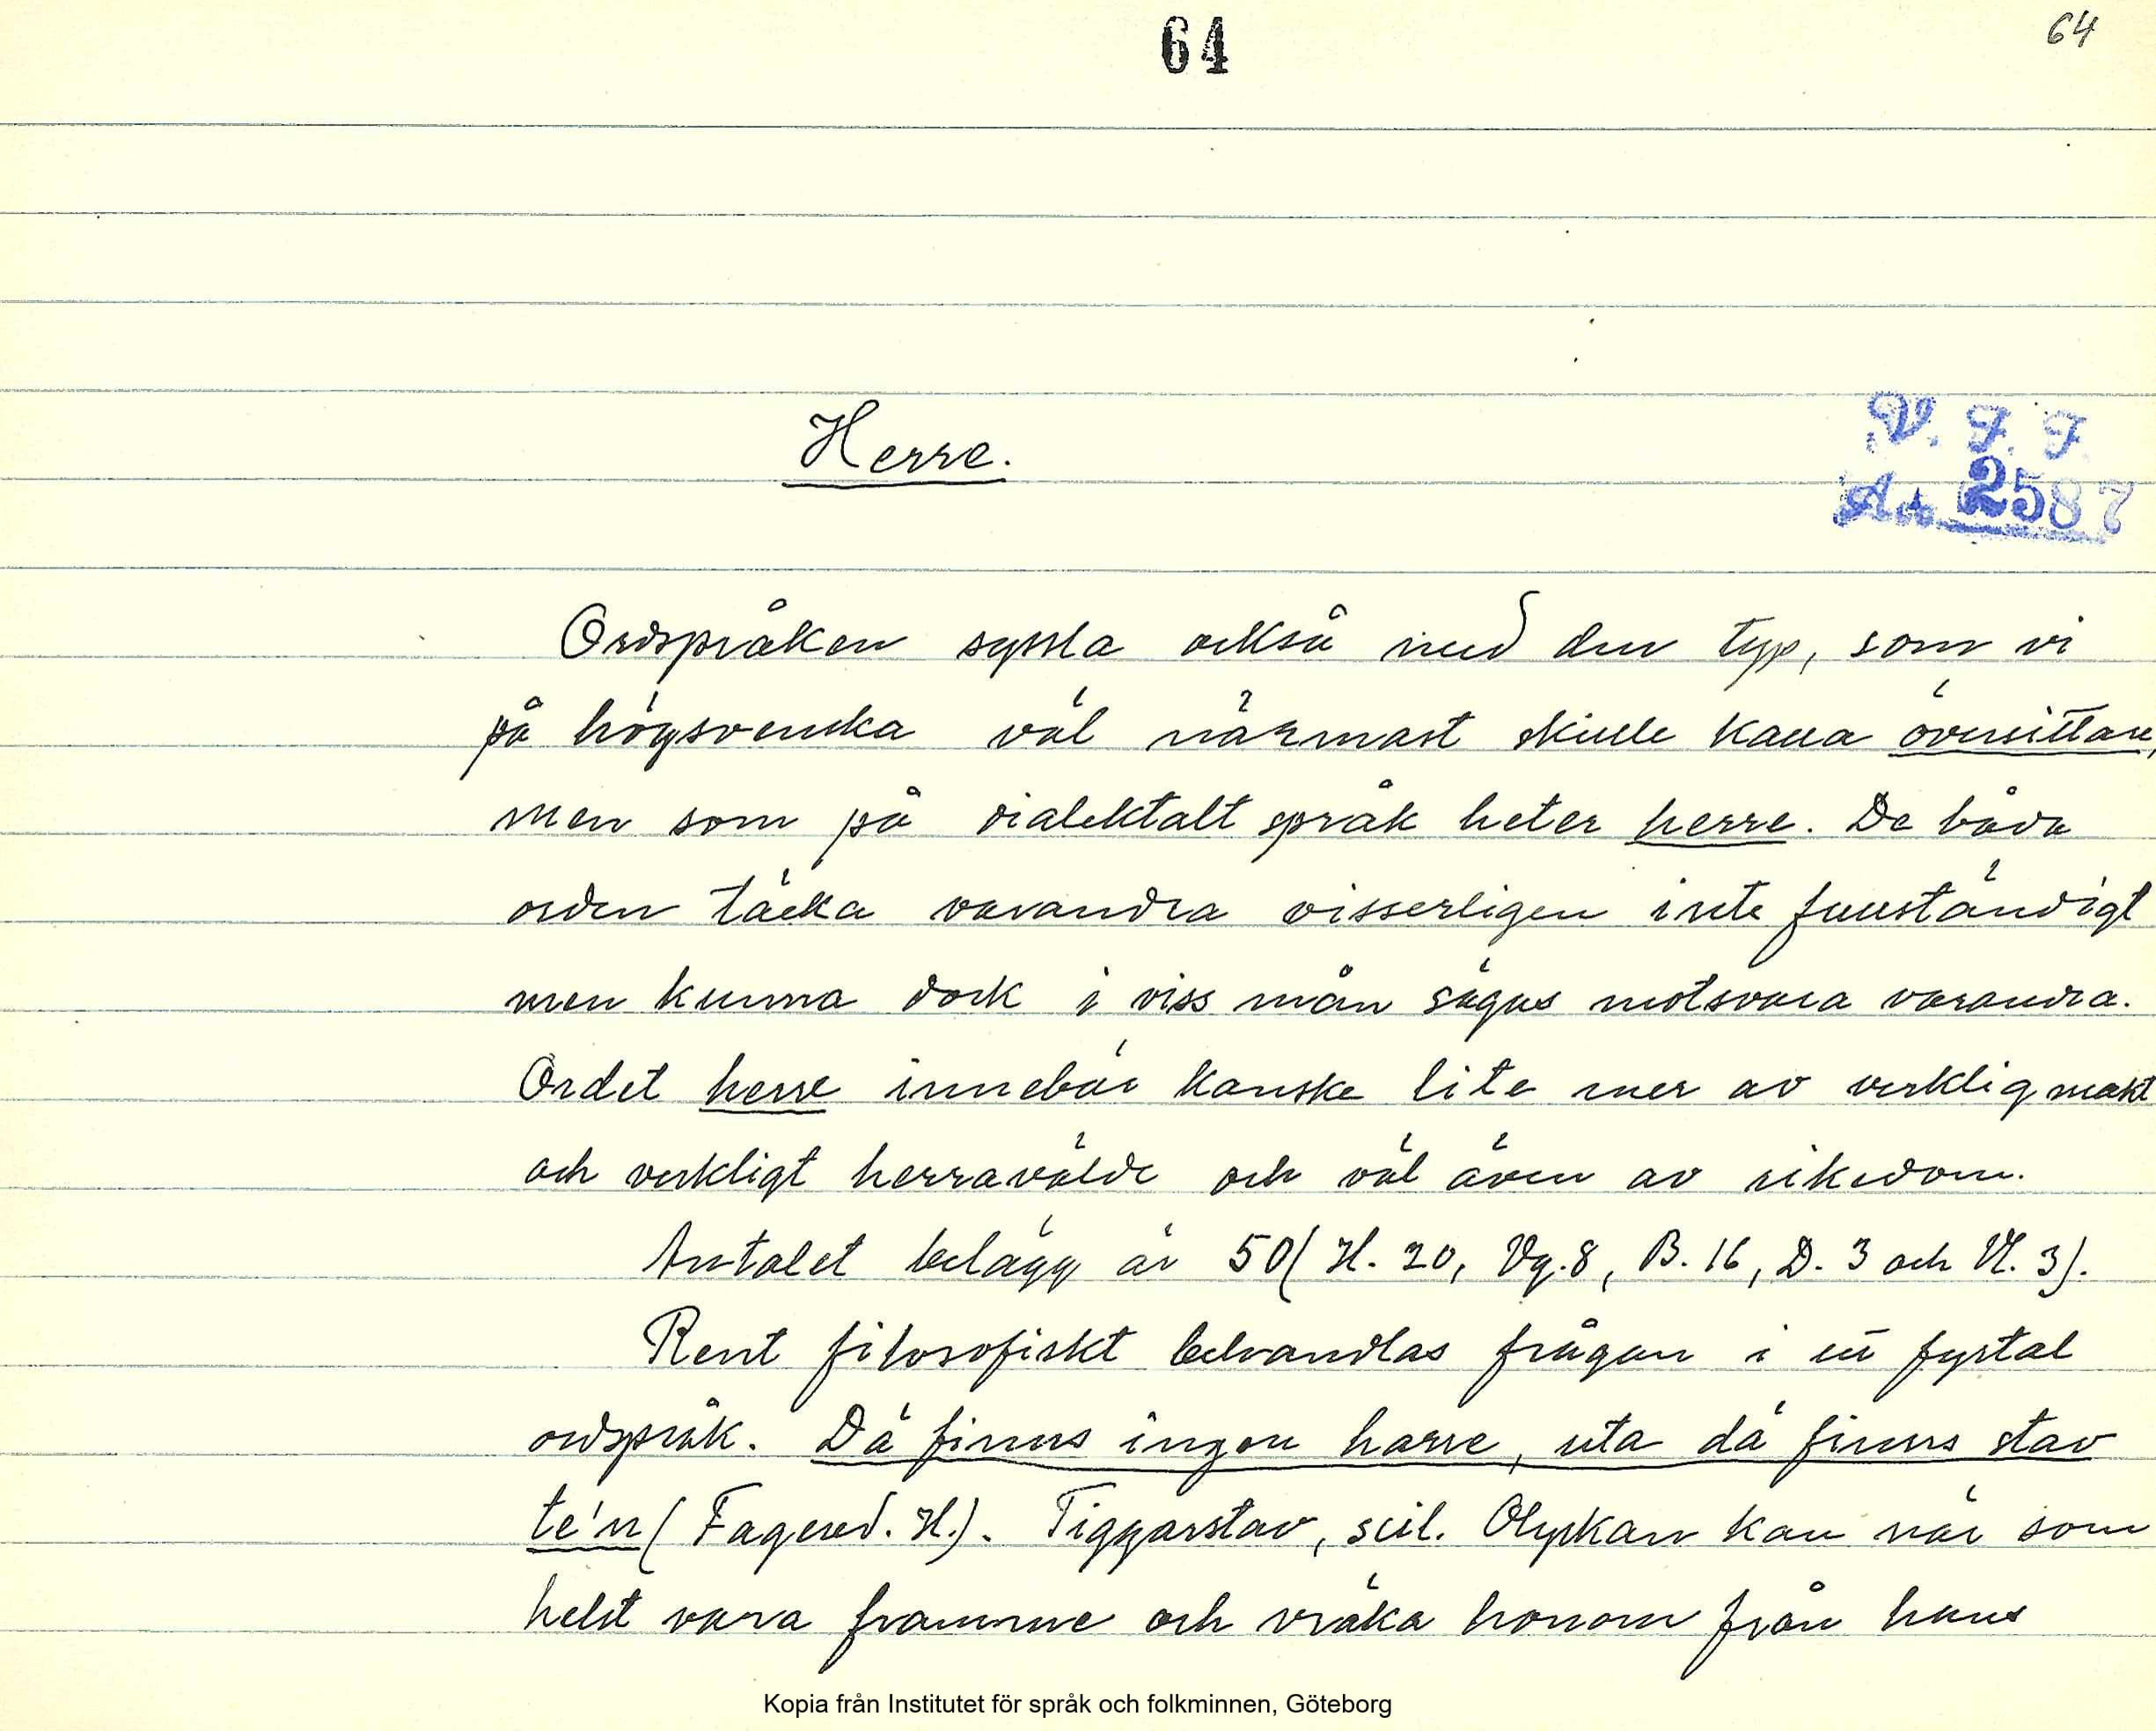 64
64
Herre.
V. F. F.
Acc. 2587
Ordspråken syssla också med den typ, som vi
på högsvenska väl närmast skulle kalla översittare,
men som på dialektalt språk heter herre. De båda
orden täcka varandra visserligen inte fullständigt
men kunna dock i viss mån sägas motsvara varandra.
Ordet herre innebär kanske lite mer av verklig makt
och verkligt herravälde och väl även av rikedom.
Antalet belägg är 50 (H. 20, Vg. 8, B. 16, D. 3 och Vl. 3).
Rent filosofiskt behandlas frågan i ett fyrtal
ordspråk. Dä finns ingen harre, uta dä finns stav
te'n (Fagered. H.). Tiggarstav, scil. Olyckan kan när som
helst vara framme och vräka honom från hans
Kopia från Institutet för språk och folkminnen, Göteborg